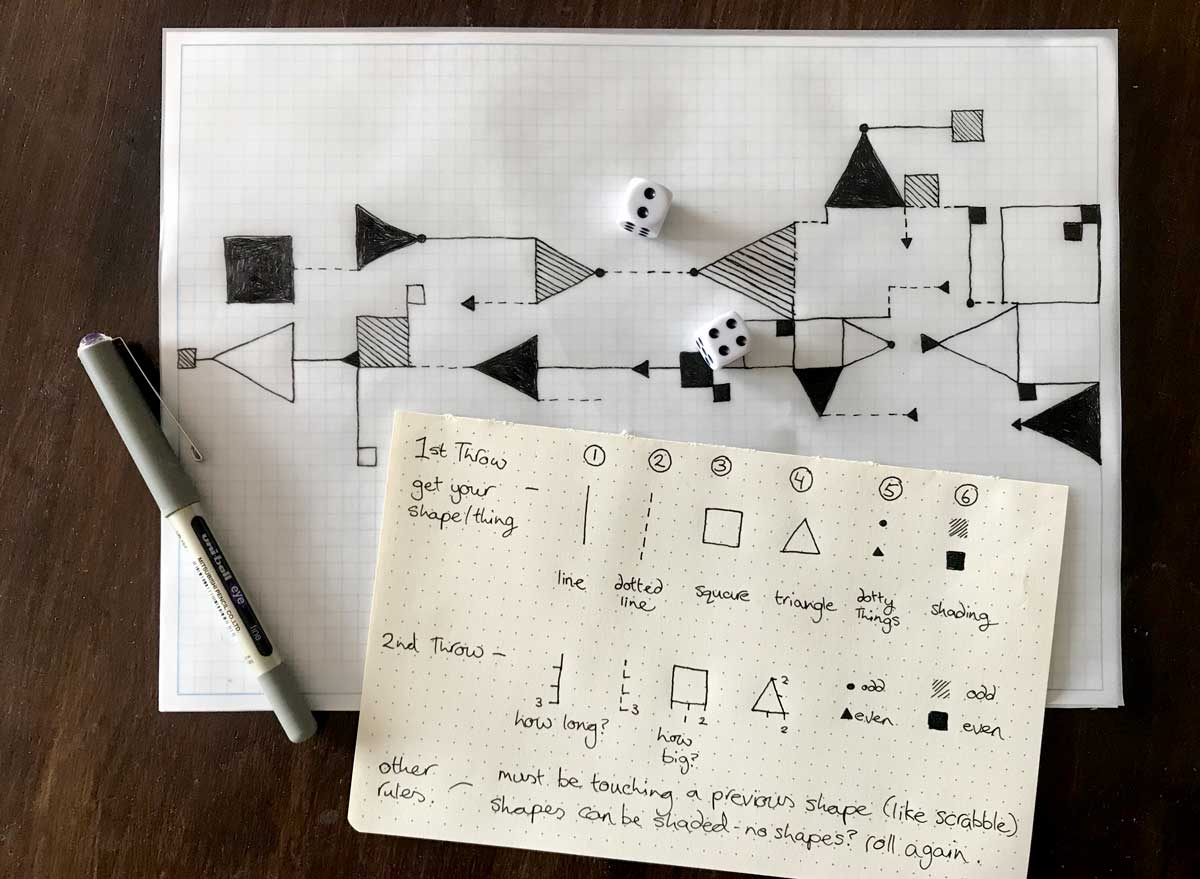 1st Throw
get your — ① ② ③ ④ ⑤ ⑥
shape/thing
line dotted line square triangle dotty Things shading
2nd Throw —
3 3 2 2 2
how long? how big? odd odd
even even
other rules. — must be touching a previous shape (like scrabble)
shapes can be shaded - no shapes? roll again.
uni-ball eye fine
MITSUBISHI PENCIL CO. LTD